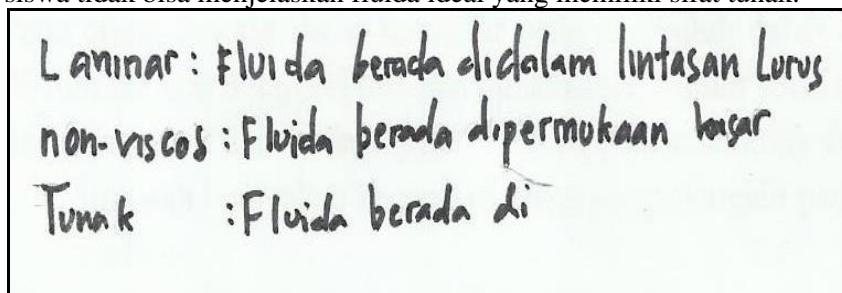 siswa tidak bisa menjelaskan fluida ideal yang memiliki sifat tunak.
Laminar : Fluida berada didalam lintasan Lurus
non-viscos : Fluida berada dipermukaan kasar
Tunak : Fluida berada di